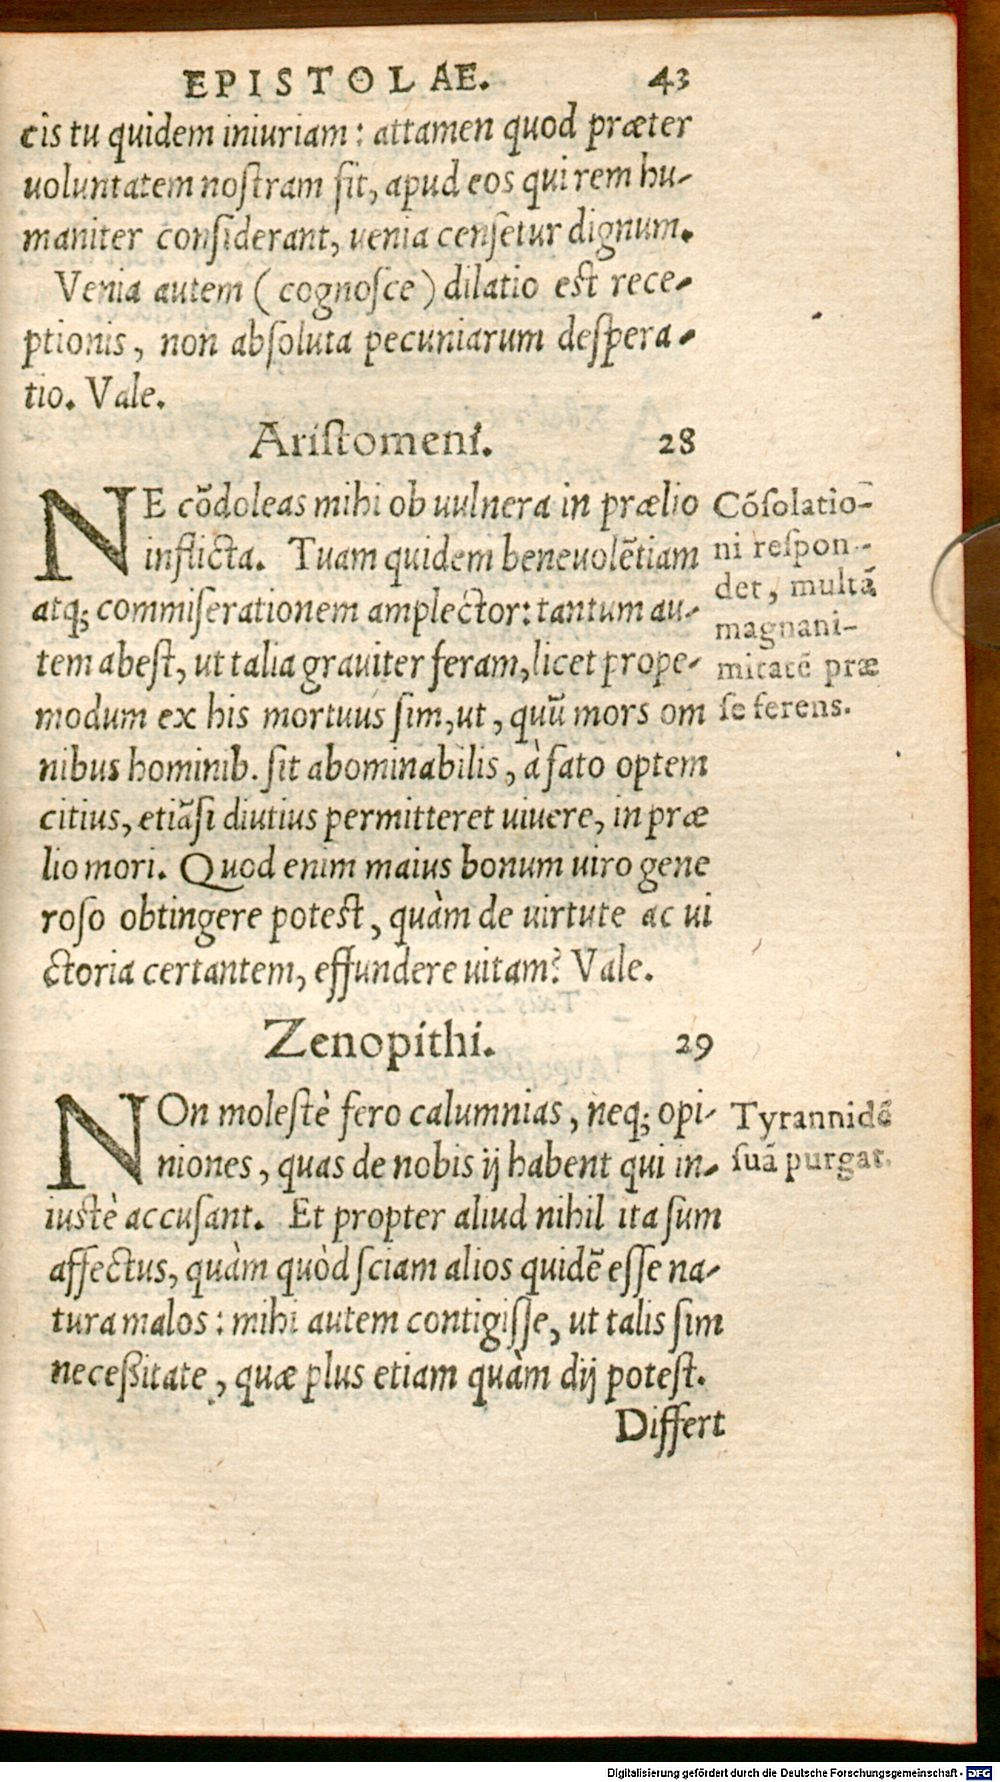 EPISTOLAE. 43
cis tu quidem iniuriam: attamen quod præter
uoluntatem noſtram ſit, apud eos qui rem hu-
maniter conſiderant, uenia cenſetur dignum.
Venia autem (cognoſce) dilatio eſt rece-
ptionis, non abſoluta pecuniarum deſpera-
tio. Vale.
Ariſtomeni. 28
NE cōdoleas mihi ob uulnera in prælio
inflicta. Tuam quidem beneuolẽtiam
atq; commiſerationem amplector: tantum au-
tem abeſt, ut talia grauiter feram, licet prope-
modum ex his mortuus ſim, ut, quũ mors om
nibus hominib. ſit abominabilis, à fato optem
citius, etiãſi diutius permitteret uiuere, in præ
lio mori. Quod enim maius bonum uiro gene
roſo obtingere poteſt, quàm de uirtute ac ui
ctoria certantem, effundere uitam? Vale.
Cōſolatio-
ni reſpon-
det, multã
magnani-
mitatē præ
ſe ferens.
Zenopithi. 29
NOn moleſtè fero calumnias, neq; opi-
niones, quas de nobis ij habent qui in-
iuſtè accuſant. Et propter aliud nihil ita ſum
affectus, quàm quòd ſciam alios quidẽ eſſe na-
tura malos: mihi autem contigiſſe, ut talis ſim
neceßitate, quæ plus etiam quàm dij poteſt.
Tyrannidē
ſuã purgat.
Differt
Digitalisierung gefördert durch die Deutsche Forschungsgemeinschaft - DFG